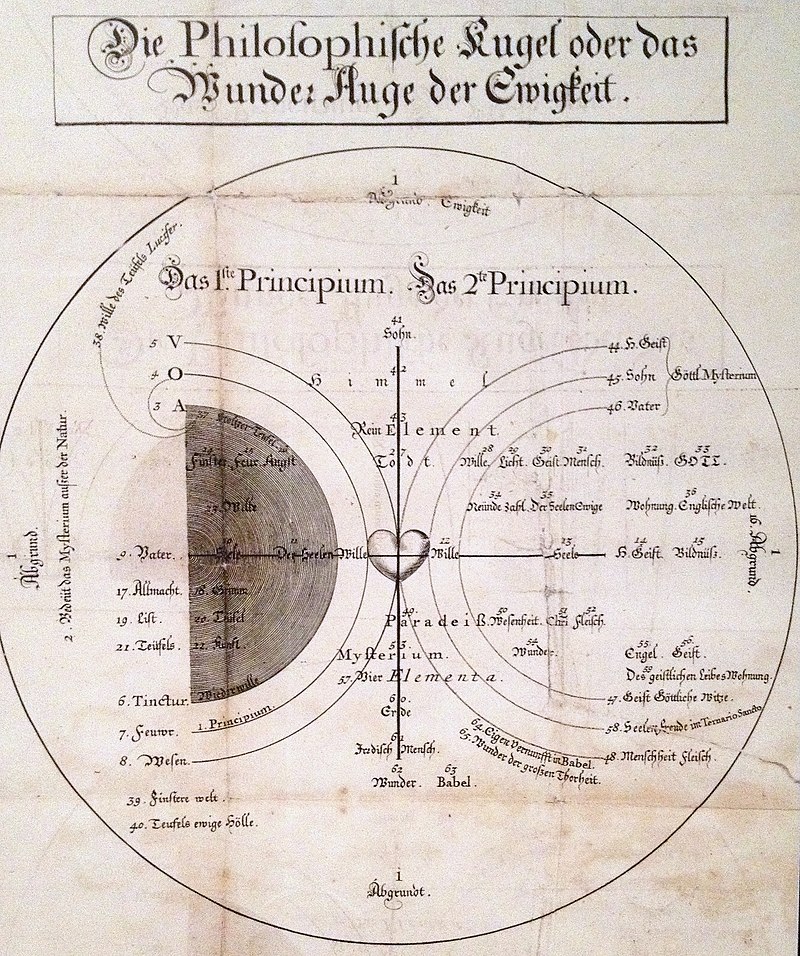 Die Philosophische Kugel oder das
Wunder Auge der Ewigkeit.
1
Abgrund. Ewigkeit
Das 1ste Principium. Das 2te Principium.
38. Wille des Teufels Lucifer.
41
Sohn.
5 V
44. H. Geist
4 O
42
Himmel
45. Sohn
Göttl Mysterium
3 A
46. Vater
37. Teufel
43
Rein Element
Finster Feur Angst
27
Todt.
28 29 30 31 32 33
Wille, Licht. Geist Mensch. Bildnüß. GOTT.
Wille
34 35 36
Zahl. Der Seelen Ewige Wohnung. Englische Welt.
1
Abgrund.
2. Bedeüt das Mysterium außer der Natur
9. Vater. 10 Seele 11 Der Seelen Wille
12 Wille 13. Seele 14 H. Geist. 15 Bildnüß.
16. Abgrund.
1
17. Allmacht. 18. Grimm
19. List. 20. Teüfel
21. Teüfels. 22. Kunst.
49. Paradeiß. 50 Wesenheit. 51 Chri 52 Fleisch.
53. Mysterium.
54 Wunder.
55. Engel. 56. Geist.
57. Vier Elementa.
59 Des geistlichen Leibes Wohnung.
6. Tinctur. Wiederwille
47. Geist Göttliche Witze.
60. Erde
7. Feuwr. 1. Principium.
58. Seelen Ende im Ternario Sancto
61
Irdisch Mensch.
64. Eigen Vernunfft in Babel.
65. Wunder der großen Thorheit.
8. Wesen.
48. Menschheit Fleisch.
62 63
Wunder. Babel.
39. Finstere welt.
40. Teufels ewige Hölle.
1
Abgrundt.